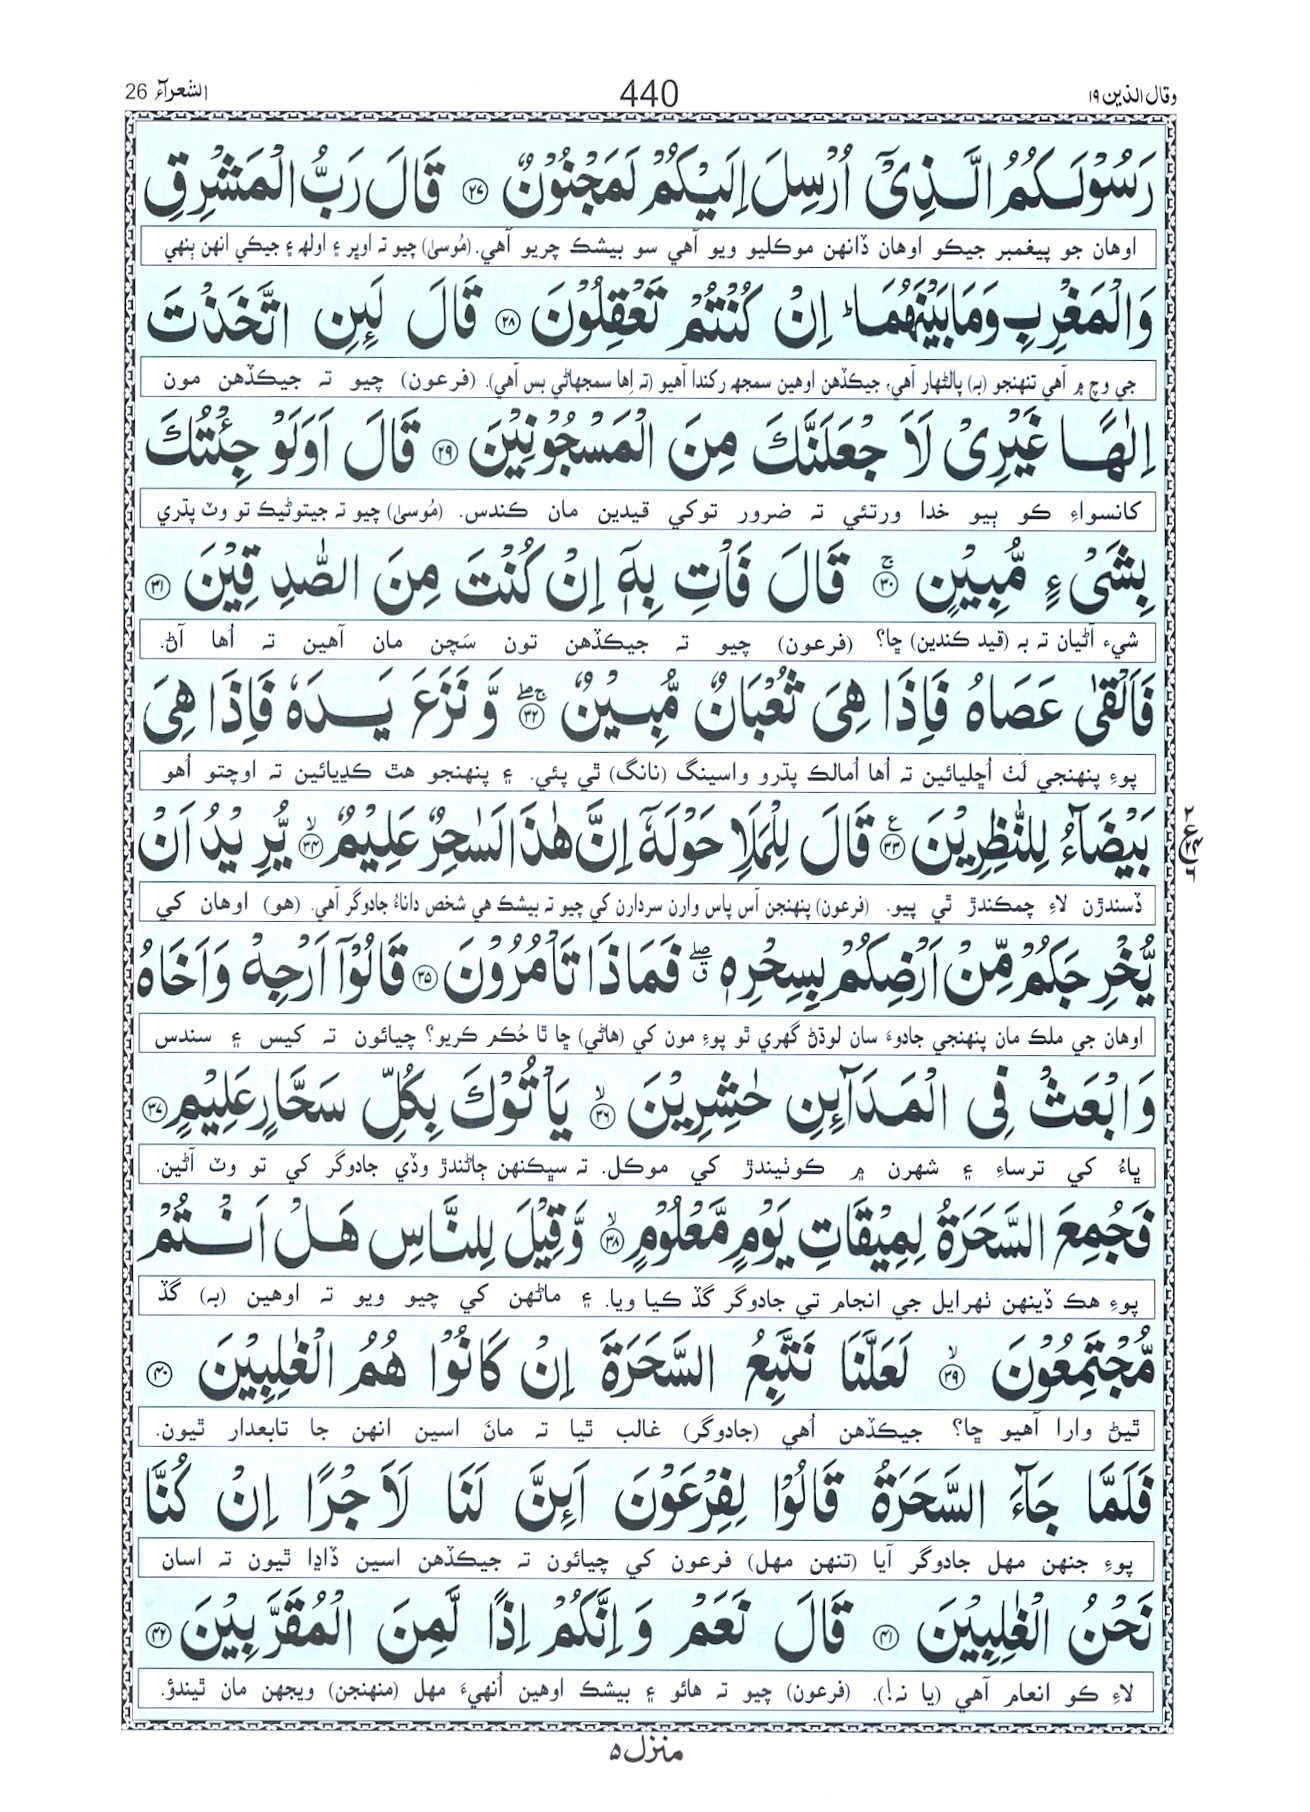 وقال الذين ١٩
440
الشعرآء 26
رَسُوْلَكُمُ الَّذِىْٓ اُرْسِلَ اِلَيْكُمْ لَمَجْنُوْنٌ ۝٢٧ قَالَ رَبُّ الْمَشْرِقِ
اوهان جو پيغمبر جيڪو اوهان ڏانهن موڪليو ويو آهي سو بيشڪ چريو آهي. (مُوسىٰ) چيو تہ اوڀر ۽ اولھ ۽ جيڪي انهن ٻنهي
وَالْمَغْرِبِ وَمَا بَيْنَهُمَا ؕ اِنْ كُنْتُمْ تَعْقِلُوْنَ ۝٢٨ قَالَ لَئِنِ اتَّخَذْتَ
جي وچ ۾ آهي تنهنجو (بہ) پالڻهار آهي، جيڪڏهن اوهين سمجھ رکندا آهيو (تہ اِها سمجهاڻي بس آهي). (فرعون) چيو تہ جيڪڏهن مون
اِلٰهًا غَيْرِىْ لَاَجْعَلَنَّكَ مِنَ الْمَسْجُوْنِيْنَ ۝٢٩ قَالَ اَوَلَوْ جِئْتُكَ
کانسواءِ ڪو ٻيو خدا ورتئي تہ ضرور توکي قيدين مان ڪندس. (مُوسىٰ) چيو تہ جيتوڻيڪ تو وٽ پڌري
بِشَىْءٍ مُّبِيْنٍ ۝٣٠ۚ قَالَ فَاْتِ بِهٖٓ اِنْ كُنْتَ مِنَ الصّٰدِقِيْنَ ۝٣١
شيء آڻيان تہ بہ (قيد ڪندين) ڇا؟ (فرعون) چيو تہ جيڪڏهن تون سَچن مان آهين تہ اُها آڻ.
فَاَلْقٰى عَصَاهُ فَاِذَا هِىَ ثُعْبَانٌ مُّبِيْنٌ ۝٣٢ۚۖ وَّنَزَعَ يَدَهٗ فَاِذَا هِىَ
پوءِ پنهنجي لَٺ اُڇليائين تہ اُها اُمالڪ پڌرو واسينگ (نانگ) ٿي پئي. ۽ پنهنجو هٿ ڪڍيائين تہ اوچتو اُهو
بَيْضَآءُ لِلنّٰظِرِيْنَ ۝٣٣ۧ قَالَ لِلْمَلَاِ حَوْلَهٗٓ اِنَّ هٰذَا لَسٰحِرٌ عَلِيْمٌ ۝٣٤ۙ يُّرِيْدُ اَنْ
ڏسندڙن لاءِ چمڪندڙ ٿي پيو. (فرعون) پنهنجن آس پاس وارن سردارن کي چيو تہ بيشڪ هي شخص داناءُ جادوگر آهي. (هو) اوهان کي
يُّخْرِجَكُمْ مِّنْ اَرْضِكُمْ بِسِحْرِهٖ ۖۗ فَمَاذَا تَاْمُرُوْنَ ۝٣٥ قَالُوْٓا اَرْجِهْ وَاَخَاهُ
اوهان جي ملڪ مان پنهنجي جادوءَ سان لوڌڻ گهري ٿو پوءِ مون کي (هاڻي) ڇا ٿا حُڪم ڪريو؟ چيائون تہ کيس ۽ سندس
وَابْعَثْ فِى الْمَدَآئِنِ حٰشِرِيْنَ ۝٣٦ۙ يَاْتُوْكَ بِكُلِّ سَحَّارٍ عَلِيْمٍ ۝٣٧
ڀاءُ کي ترساءِ ۽ شهرن ۾ ڪوٺيندڙ کي موڪل. تہ سڀڪنهن ڄاڻندڙ وڏي جادوگر کي تو وٽ آڻين.
فَجُمِعَ السَّحَرَةُ لِمِيْقَاتِ يَوْمٍ مَّعْلُوْمٍ ۝٣٨ۙ وَّقِيْلَ لِلنَّاسِ هَلْ اَنْتُمْ
پوءِ هڪ ڏينهن ٺهرايل جي انجام تي جادوگر گڏ ڪيا ويا. ۽ ماڻهن کي چيو ويو تہ اوهين (بہ) گڏ
مُّجْتَمِعُوْنَ ۝٣٩ۙ لَعَلَّنَا نَتَّبِعُ السَّحَرَةَ اِنْ كَانُوْا هُمُ الْغٰلِبِيْنَ ۝٤٠
ٿيڻ وارا آهيو ڇا؟ جيڪڏهن اُهي (جادوگر) غالب ٿيا تہ مانَ اسين انهن جا تابعدار ٿيون.
فَلَمَّا جَآءَ السَّحَرَةُ قَالُوْا لِفِرْعَوْنَ اَئِنَّ لَنَا لَاَجْرًا اِنْ كُنَّا
پوءِ جنهن مهل جادوگر آيا (تنهن مهل) فرعون کي چيائون تہ جيڪڏهن اسين ڏاڍا ٿيون تہ اسان
نَحْنُ الْغٰلِبِيْنَ ۝٤١ قَالَ نَعَمْ وَاِنَّكُمْ اِذًا لَّمِنَ الْمُقَرَّبِيْنَ ۝٤٢
لاءِ ڪو انعام آهي (يا نہ!). (فرعون) چيو تہ هائو ۽ بيشڪ اوهين اُنهيءَ مهل (منهنجن) ويجهن مان ٿيندؤ.
منزل ٥